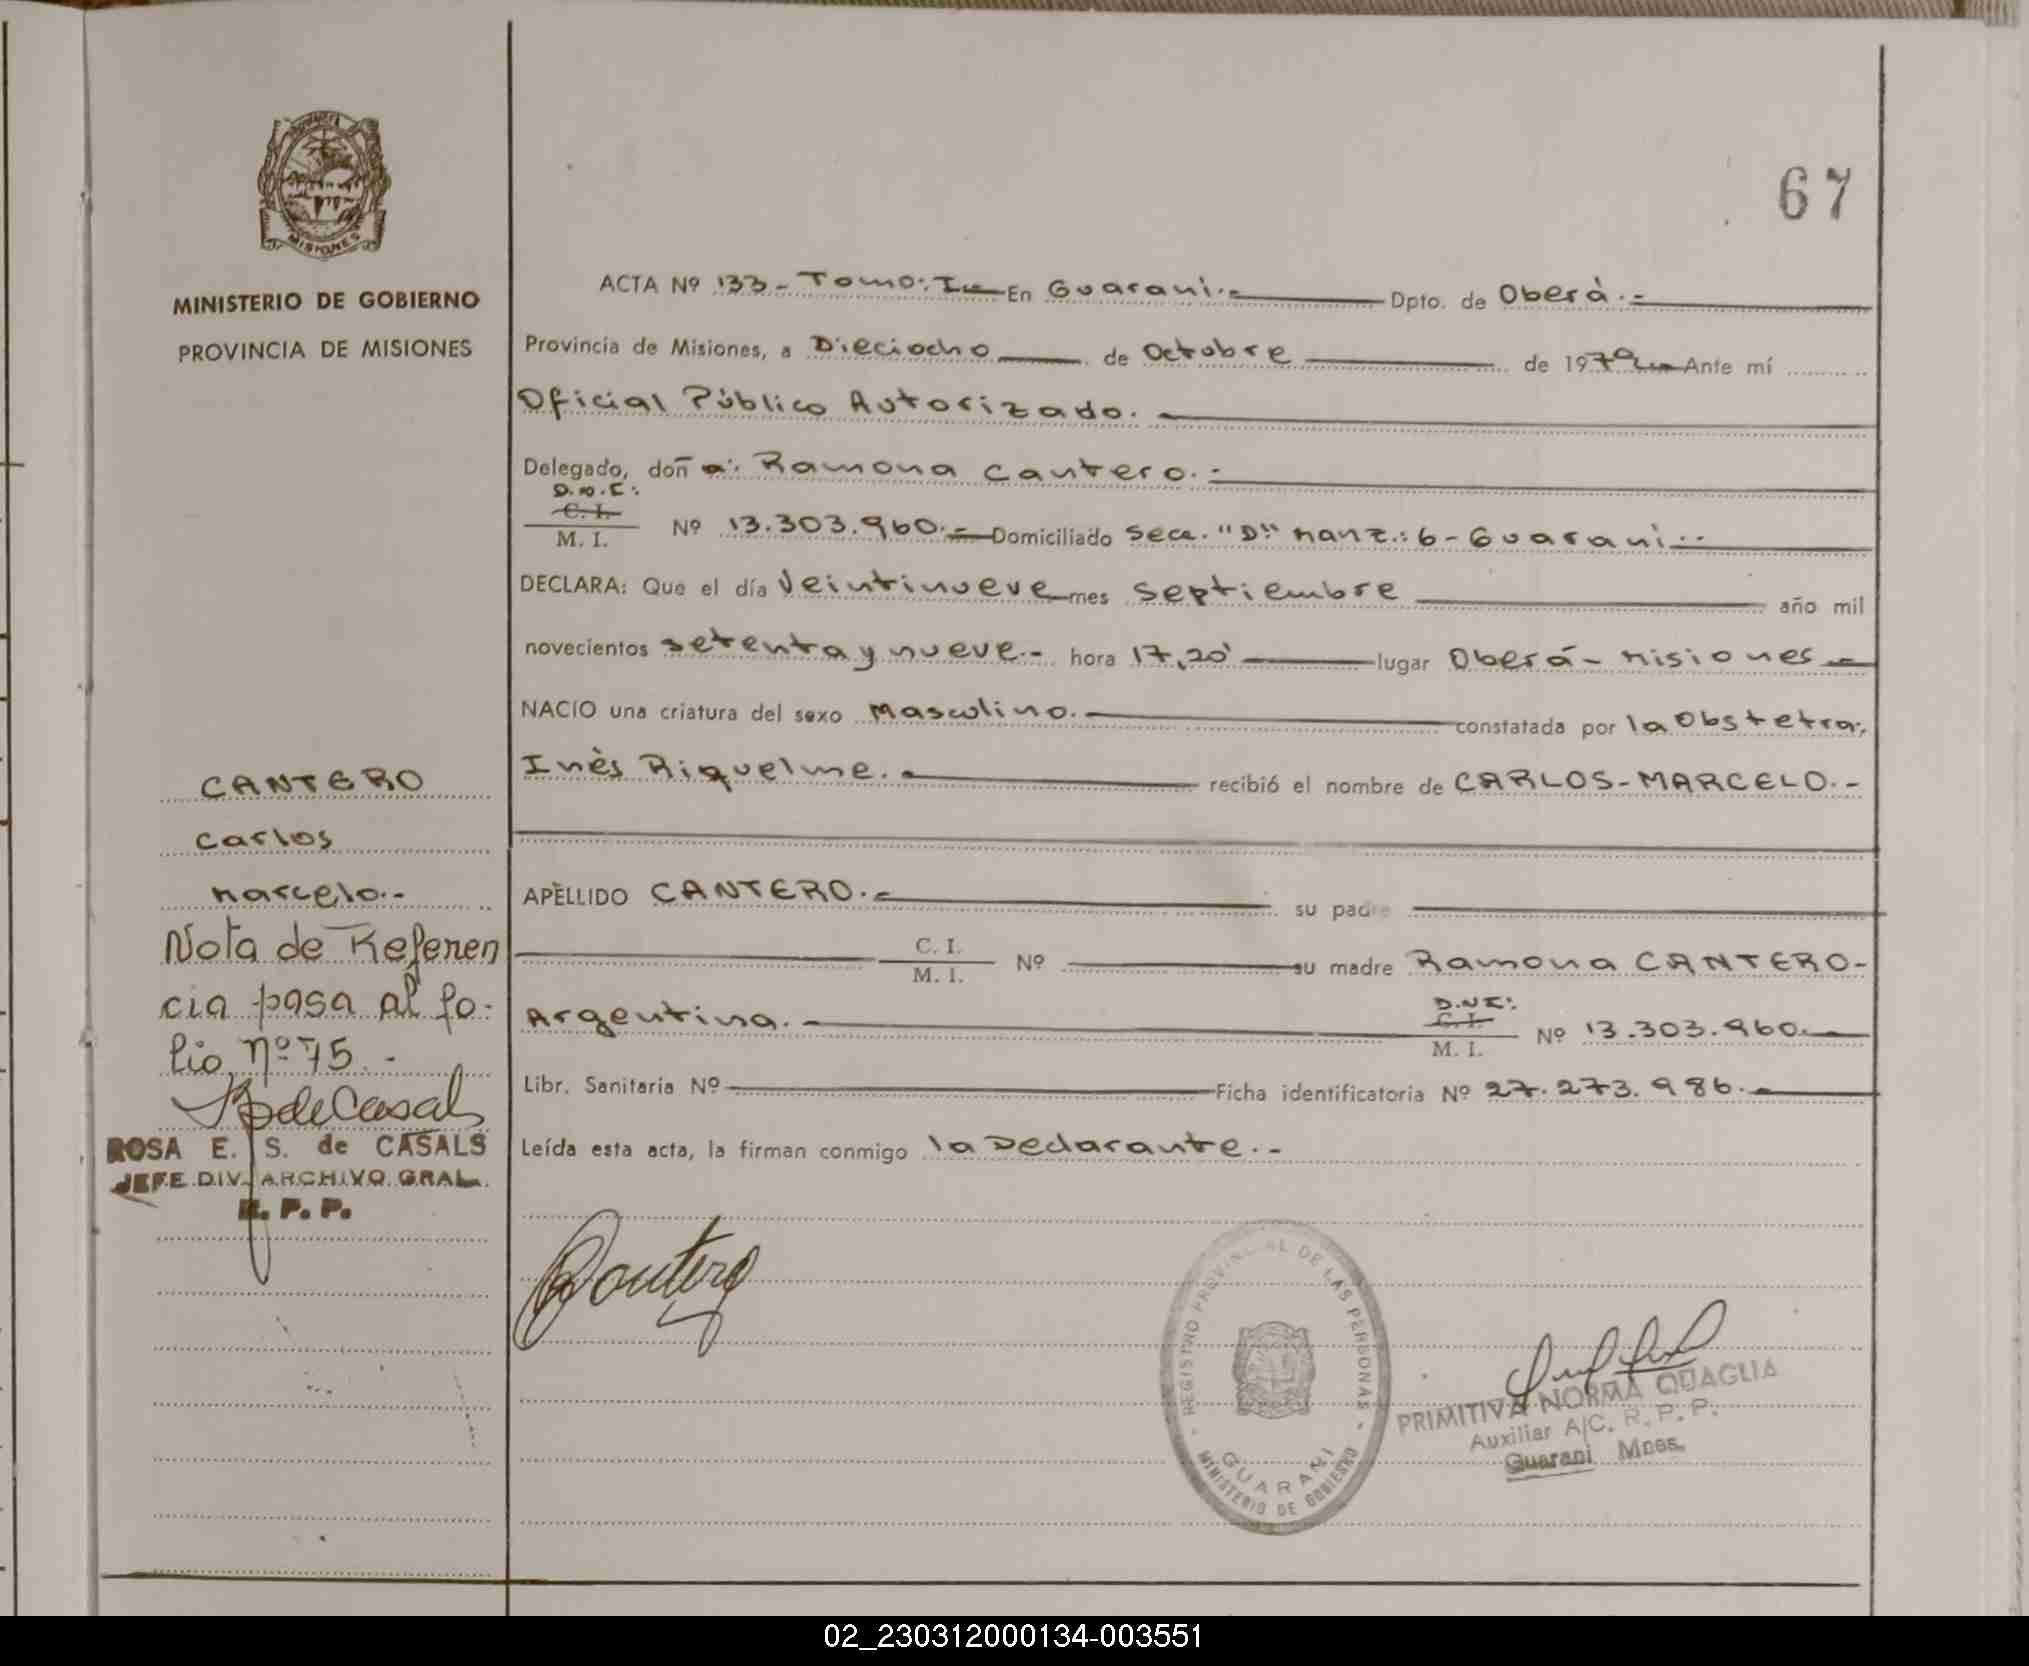 67
MISIONES
MINISTERIO DE GOBIERNO
PROVINCIA DE MISIONES
ACTA Nº 133 - Tomo: I - En Guaraní.- Dpto. de Oberá.-
Provincia de Misiones, a Dieciocho de Octubre de 1979 Ante mí
Oficial Público Autorizado.
Delegado, doña: Ramona Cantero.-
D.N.I:
C. I.
M. I.
Nº 13.303.960.- Domiciliado Secc. "D" Manz.: 6 - Guaraní.-
DECLARA: Que el día Veintinueve mes Septiembre año mil
novecientos setenta y nueve.- hora 17,20' lugar Oberá - Misiones
NACIO una criatura del sexo Masculino.- constatada por la Obstetra:
Inés Riquelme.- recibió el nombre de CARLOS-MARCELO.-
APELLIDO CANTERO.- su padre
C. I.
M. I.
Nº su madre Ramona CANTERO-
Argentina.-
D.N.I:
C. I.
M. I.
Nº 13.303.960.-
Libr. Sanitaria Nº Ficha identificatoria Nº 27.273.986.-
Leída esta acta, la firman conmigo la Declarante.-
CANTERO
Carlos
Marcelo.-
Nota de Referen
cia pasa al fo-
lio, Nº 75.-
RdeCasals
ROSA E. S. de CASALS
JEFE DIV. ARCHIVO GRAL.
R. P. P.
RCantero
REGISTRO PROVINCIAL DE LAS PERSONAS
GUARANI
MINISTERIO DE GOBIERNO
PRIMITIVA NORMA QUAGLIA
Auxiliar A/C. R. P. P.
Guaraní Mnes.
02_230312000134-003551